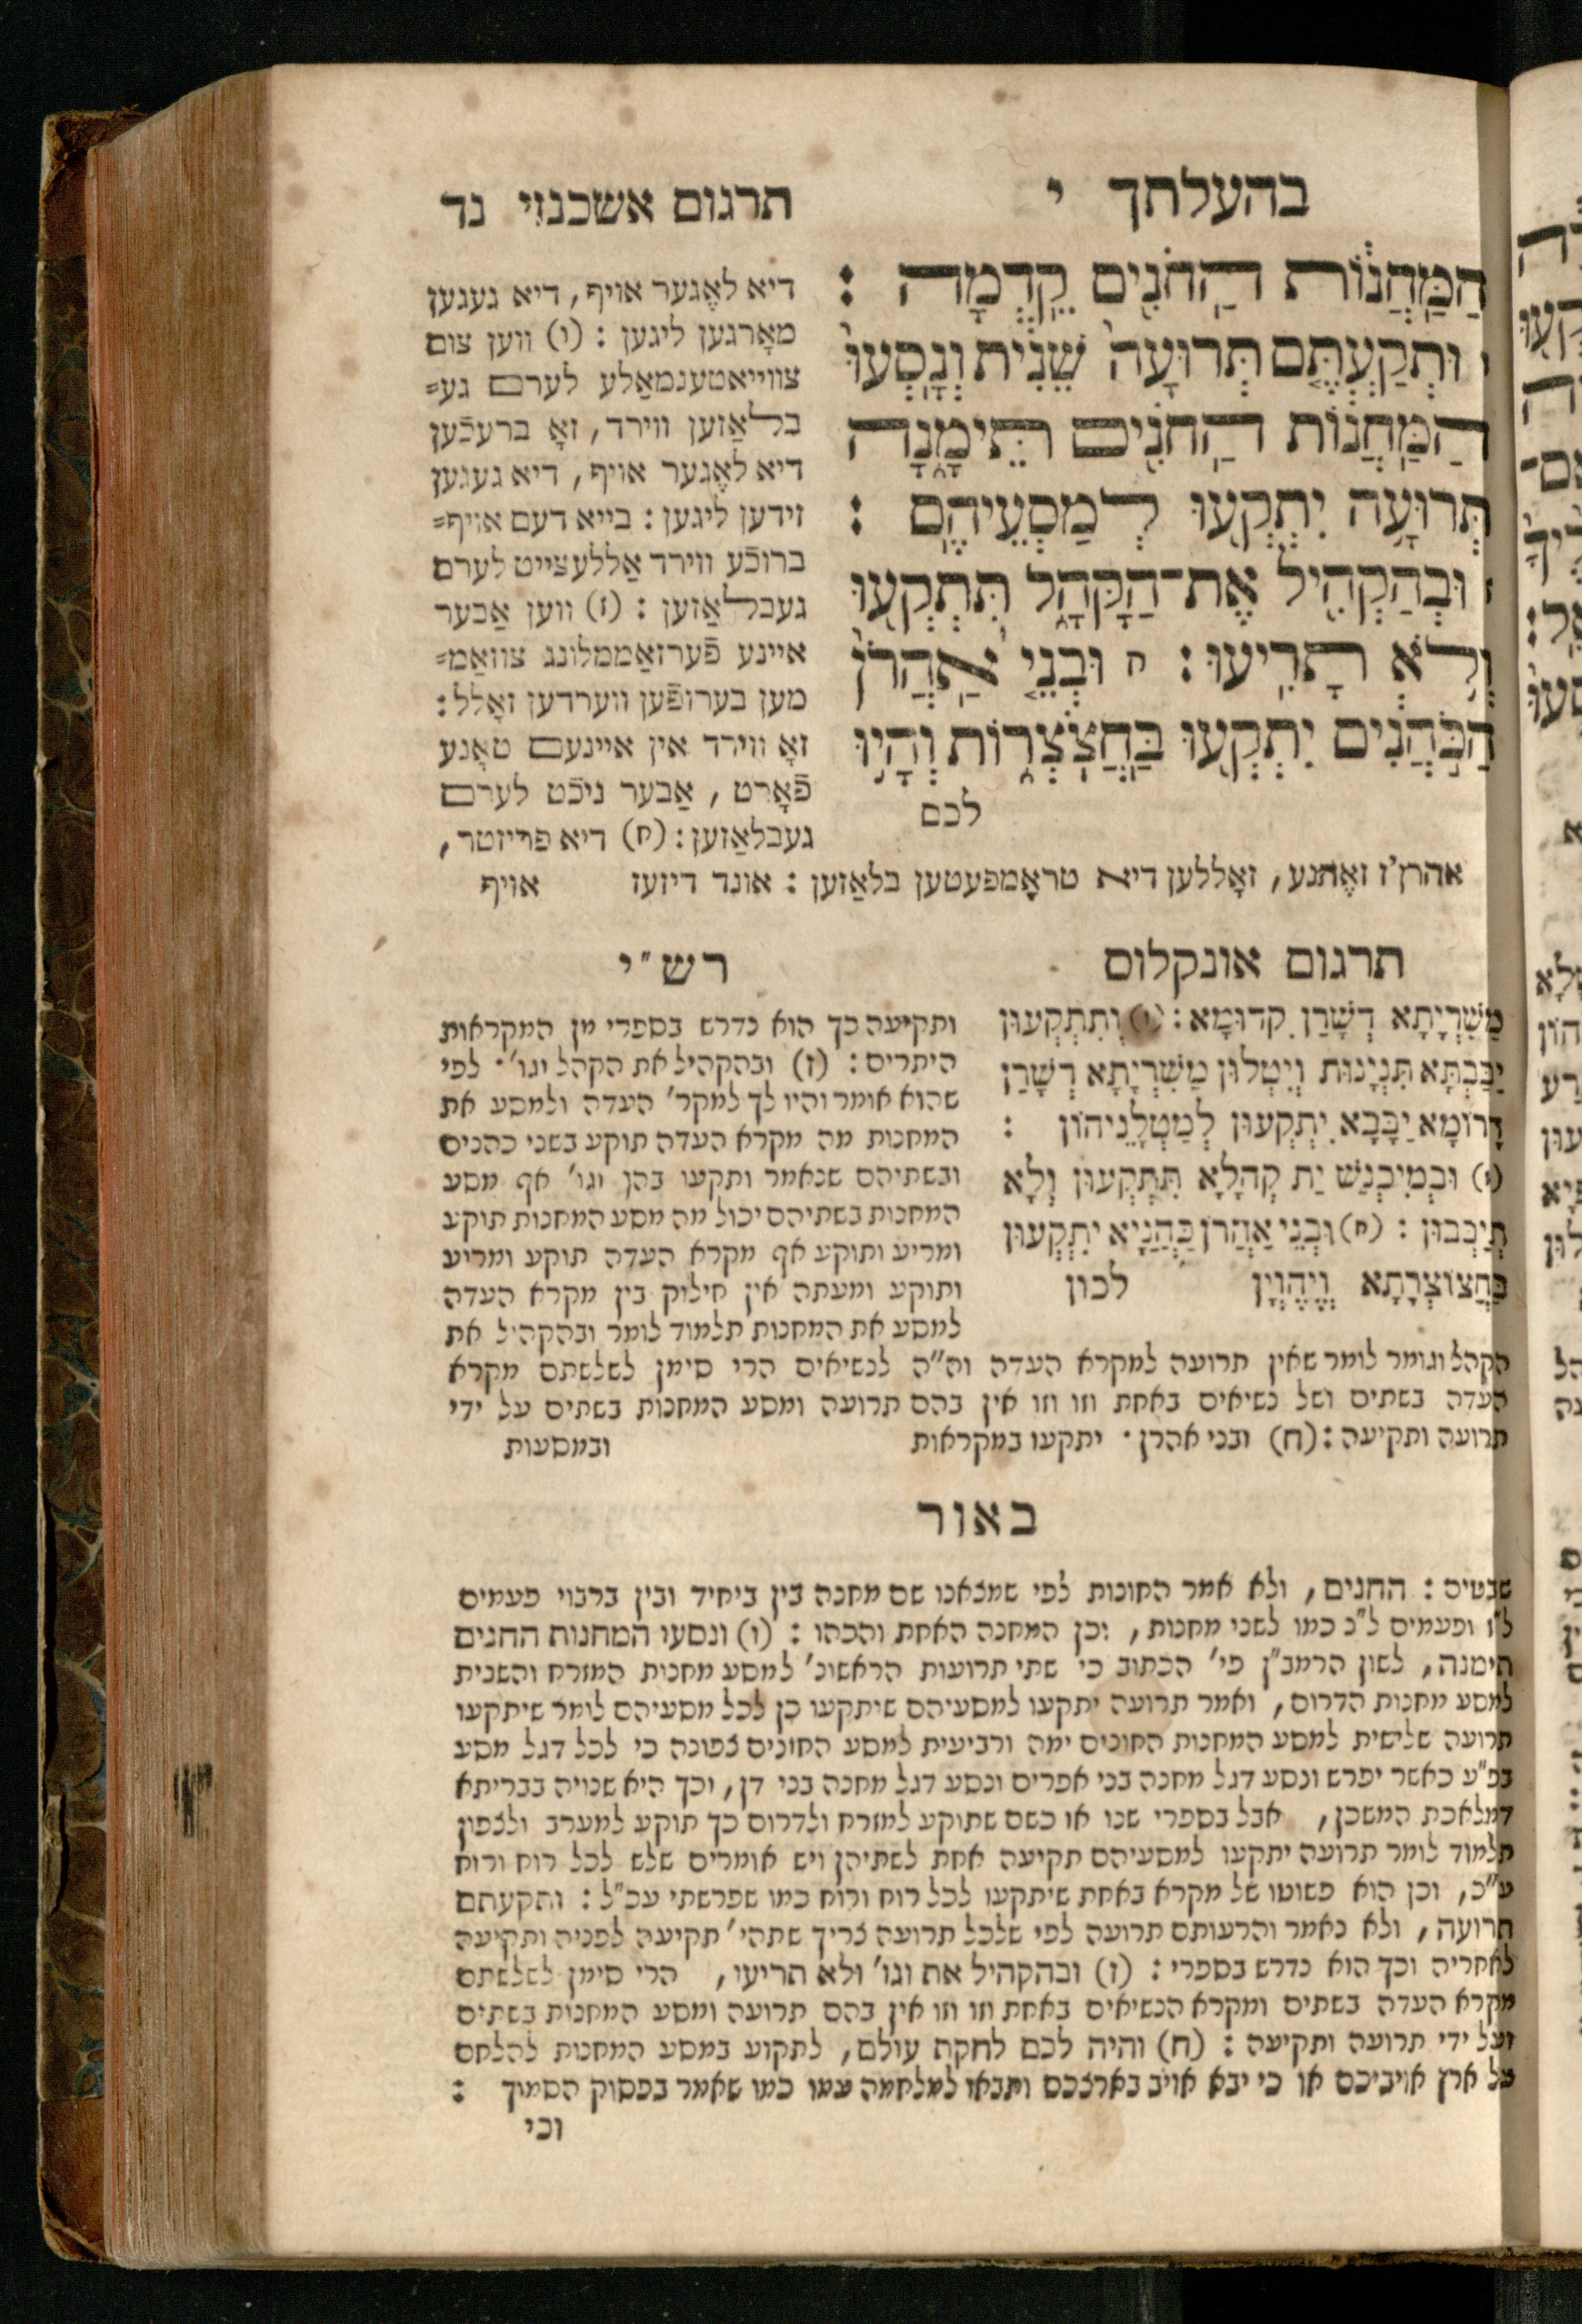 בהעלתך י
תרגום אשכנזי נד
הַמַּחֲנוֹת הַחֹנִים קֵדְמָה :
ו וּתְקַעְתֶּם תְּרוּעָה שֵׁנִית וְנָסְעוּ
הַמַּחֲנוֹת הַחֹנִים תֵּימָנָה
תְּרוּעָה יִתְקְעוּ לְמַסְעֵיהֶם :
ז וּבְהַקְהִיל אֶת־הַקָּהָל תִּתְקְעוּ
וְלֹא תָרִיעוּ : ח וּבְנֵי אַהֲרֹן
הַכֹּהֲנִים יִתְקְעוּ בַּחֲצֹצְרוֹת וְהָיוּ
לכם
דיא לאָגער אויף, דיא געגען
מאָרגען ליגען : (ו) ווען צום
צווייאטענמאַלע לערם גע=
בלאַזען ווירד, זאָ ברעכֿען
דיא לאָגער אויף, דיא געגען
זידען ליגען : בייא דעם אויף=
ברוכֿע ווירד אַללעצייט לערם
געבלאַזען : (ז) ווען אַבער
איינע פֿערזאַממלונג צוזאַמ=
מען בערופֿען ווערדען זאָלל :
זאָ ווירד אין איינעם טאָנע
פֿאָרט, אַבער ניכֿט לערם
געבלאַזען : (ח) דיא פריזטר,
אהרן'ז זאֶהנע, זאָללען דיא טראָמפעטען בלאַזען : אונד דיזעז אויף
תרגום אונקלוס
מַשִּׁרְיָתָא דְשָׁרַן קִדּוּמָא : (ו) וְתִתְקְעוּן
יַבַּבְתָּא תִּנְיָנוּת וְיִטְּלוּן מַשִּׁרְיָתָא דְשָׁרַן
דָּרוֹמָא יַבָּבָא יִתְקְעוּן לְמַטְלָנֵיהוֹן :
(ז) וּבְמִיכְנַשׁ יַת קְהָלָא תִּתְקְעוּן וְלָא
תְיַבְּבוּן : (ח) וּבְנֵי אַהֲרֹן כַּהֲנַיָּא יִתְקְעוּן
בַּחֲצוֹצְרָתָא וִיהֶוְיָן לכון
רש"י
ותקיעה כך הוא נדרש בספרי מן המקראות
היתרים : (ז) ובהקהיל את הקהל וגו'. לפי
שהוא אומר והיו לך למקר' העדה ולמסע את
המחנות מה מקרא העדה תוקע בשני כהנים
ובשתיהם שנאמר ותקעו בהן וגו' אף מסע
המחנות בשתיהם יכול מה מסע המחנות תוקע
ומריע ותוקע אף מקרא העדה תוקע ומריע
ותוקע ומעתה אין חילוק בין מקרא העדה
למסע את המחנות תלמוד לומר ובהקהיל את
הקהל וגומר לומר שאין תרועה למקרא העדה וה"ה לנשיאים הרי סימן לשלשתם מקרא
העדה בשתים ושל נשיאים באחת וזו וזו אין בהם תרועה ומסע המחנות בשתים על ידי
תרועה ותקיעה : (ח) ובני אהרן . יתקעו במקראות ובמסעות
באור
שבטים : החנים, ולא אמר החונות לפי שמצאנו שם מחנה בין ביחיד ובין ברבוי פעמים
ל"ז ופעמים ל"נ כמו לשני מחנות, וכן המחנה האחת והכהו : (ו) ונסעו המחנות החנים
תימנה, לשון הרמב"ן פי' הכתוב כי שתי תרועות הראשונ' למסע מחנות המזרח והשנית
למסע מחנות הדרום, ואמר תרועה יתקעו למסעיהם שיתקעו כן לכל מסעיהם לומר שיתקעו
תרועה שלישית למסע המחנות החונים ימה ורביעית למסע החונים צפונה כי לכל דגל מסע
בפ"ע כאשר יפרש ונסע דגל מחנה בני אפרים ונסע דגל מחנה בני דן, וכך היא שנויה בבריתא
דמלאכת המשכן, אבל בספרי שנו או כשם שתוקע למזרח ולדרום כך תוקע למערב ולצפון
תלמוד לומר תרועה יתקעו למסעיהם תקיעה אחת לשתיהן ויש אומרים שלש לכל רוח ורוח
ע"כ, וכן הוא פשוטו של מקרא באחת שיתקעו לכל רוח ורוח כמו שפרשתי עכ"ל : ותקעתם
תרועה, ולא נאמר והרעותם תרועה לפי שלכל תרועה צריך שתהי' תקיעה לפניה ותקיעה
לאחריה וכך הוא נדרש בספרי : (ז) ובהקהיל את וגו' ולא תריעו, הרי סימן לשלשתם
מקרא העדה בשתים ומקרא הנשיאים באחת וזו וזו אין בהם תרועה ומסע המחנות בשתים
ועל ידי תרועה ותקיעה : (ח) והיה לכם לחקת עולם, לתקוע במסע המחנות להלחם
על ארץ אויביכם או כי יבא אויב בארצכם ותבאו למלחמה עמו כמו שאמר בפסוק הסמוך :
וכי